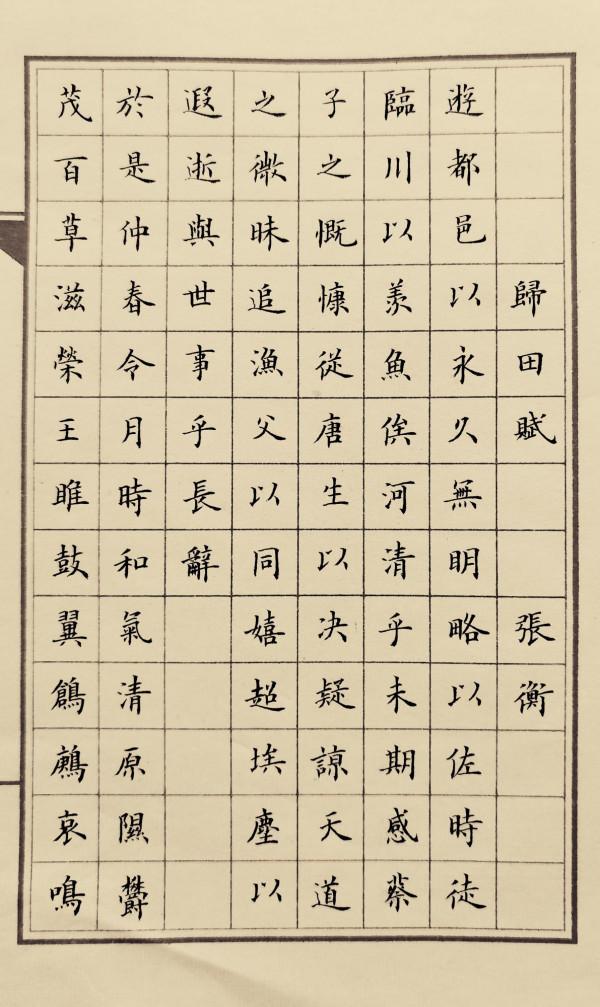 歸田賦 張衡
遊都邑以永久無明略以佐時徒
臨川以羨魚俟河清乎未期感蔡
子之慨慷從唐生以决疑諒天道
之微昧追漁父以同嬉超埃塵以
遐逝與世事乎長辭
於是仲春令月時和氣清原隰鬱
茂百草滋榮王雎鼓翼鶬鶊哀鳴